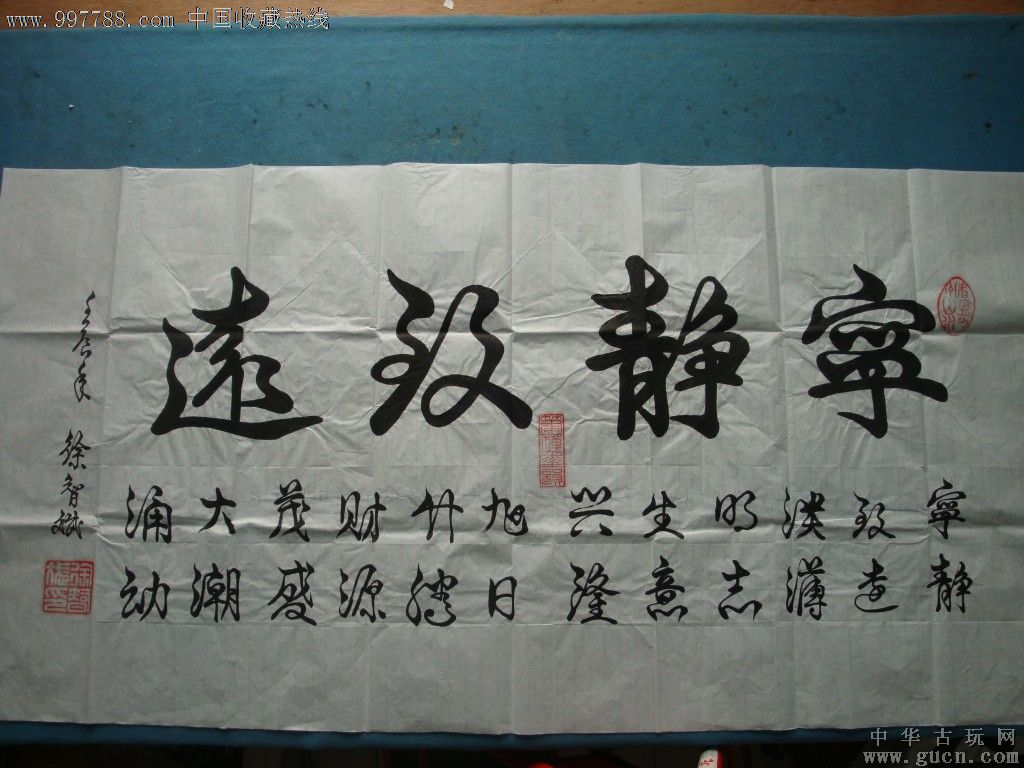 www.997788.com 中国收藏热线
寧静致遠
寧静
致远
淡薄
明志
生意
兴隆
旭日
升腾
财源
茂盛
大潮
涌动
壬辰年 徐智斌
中华古玩网
www.gucn.com